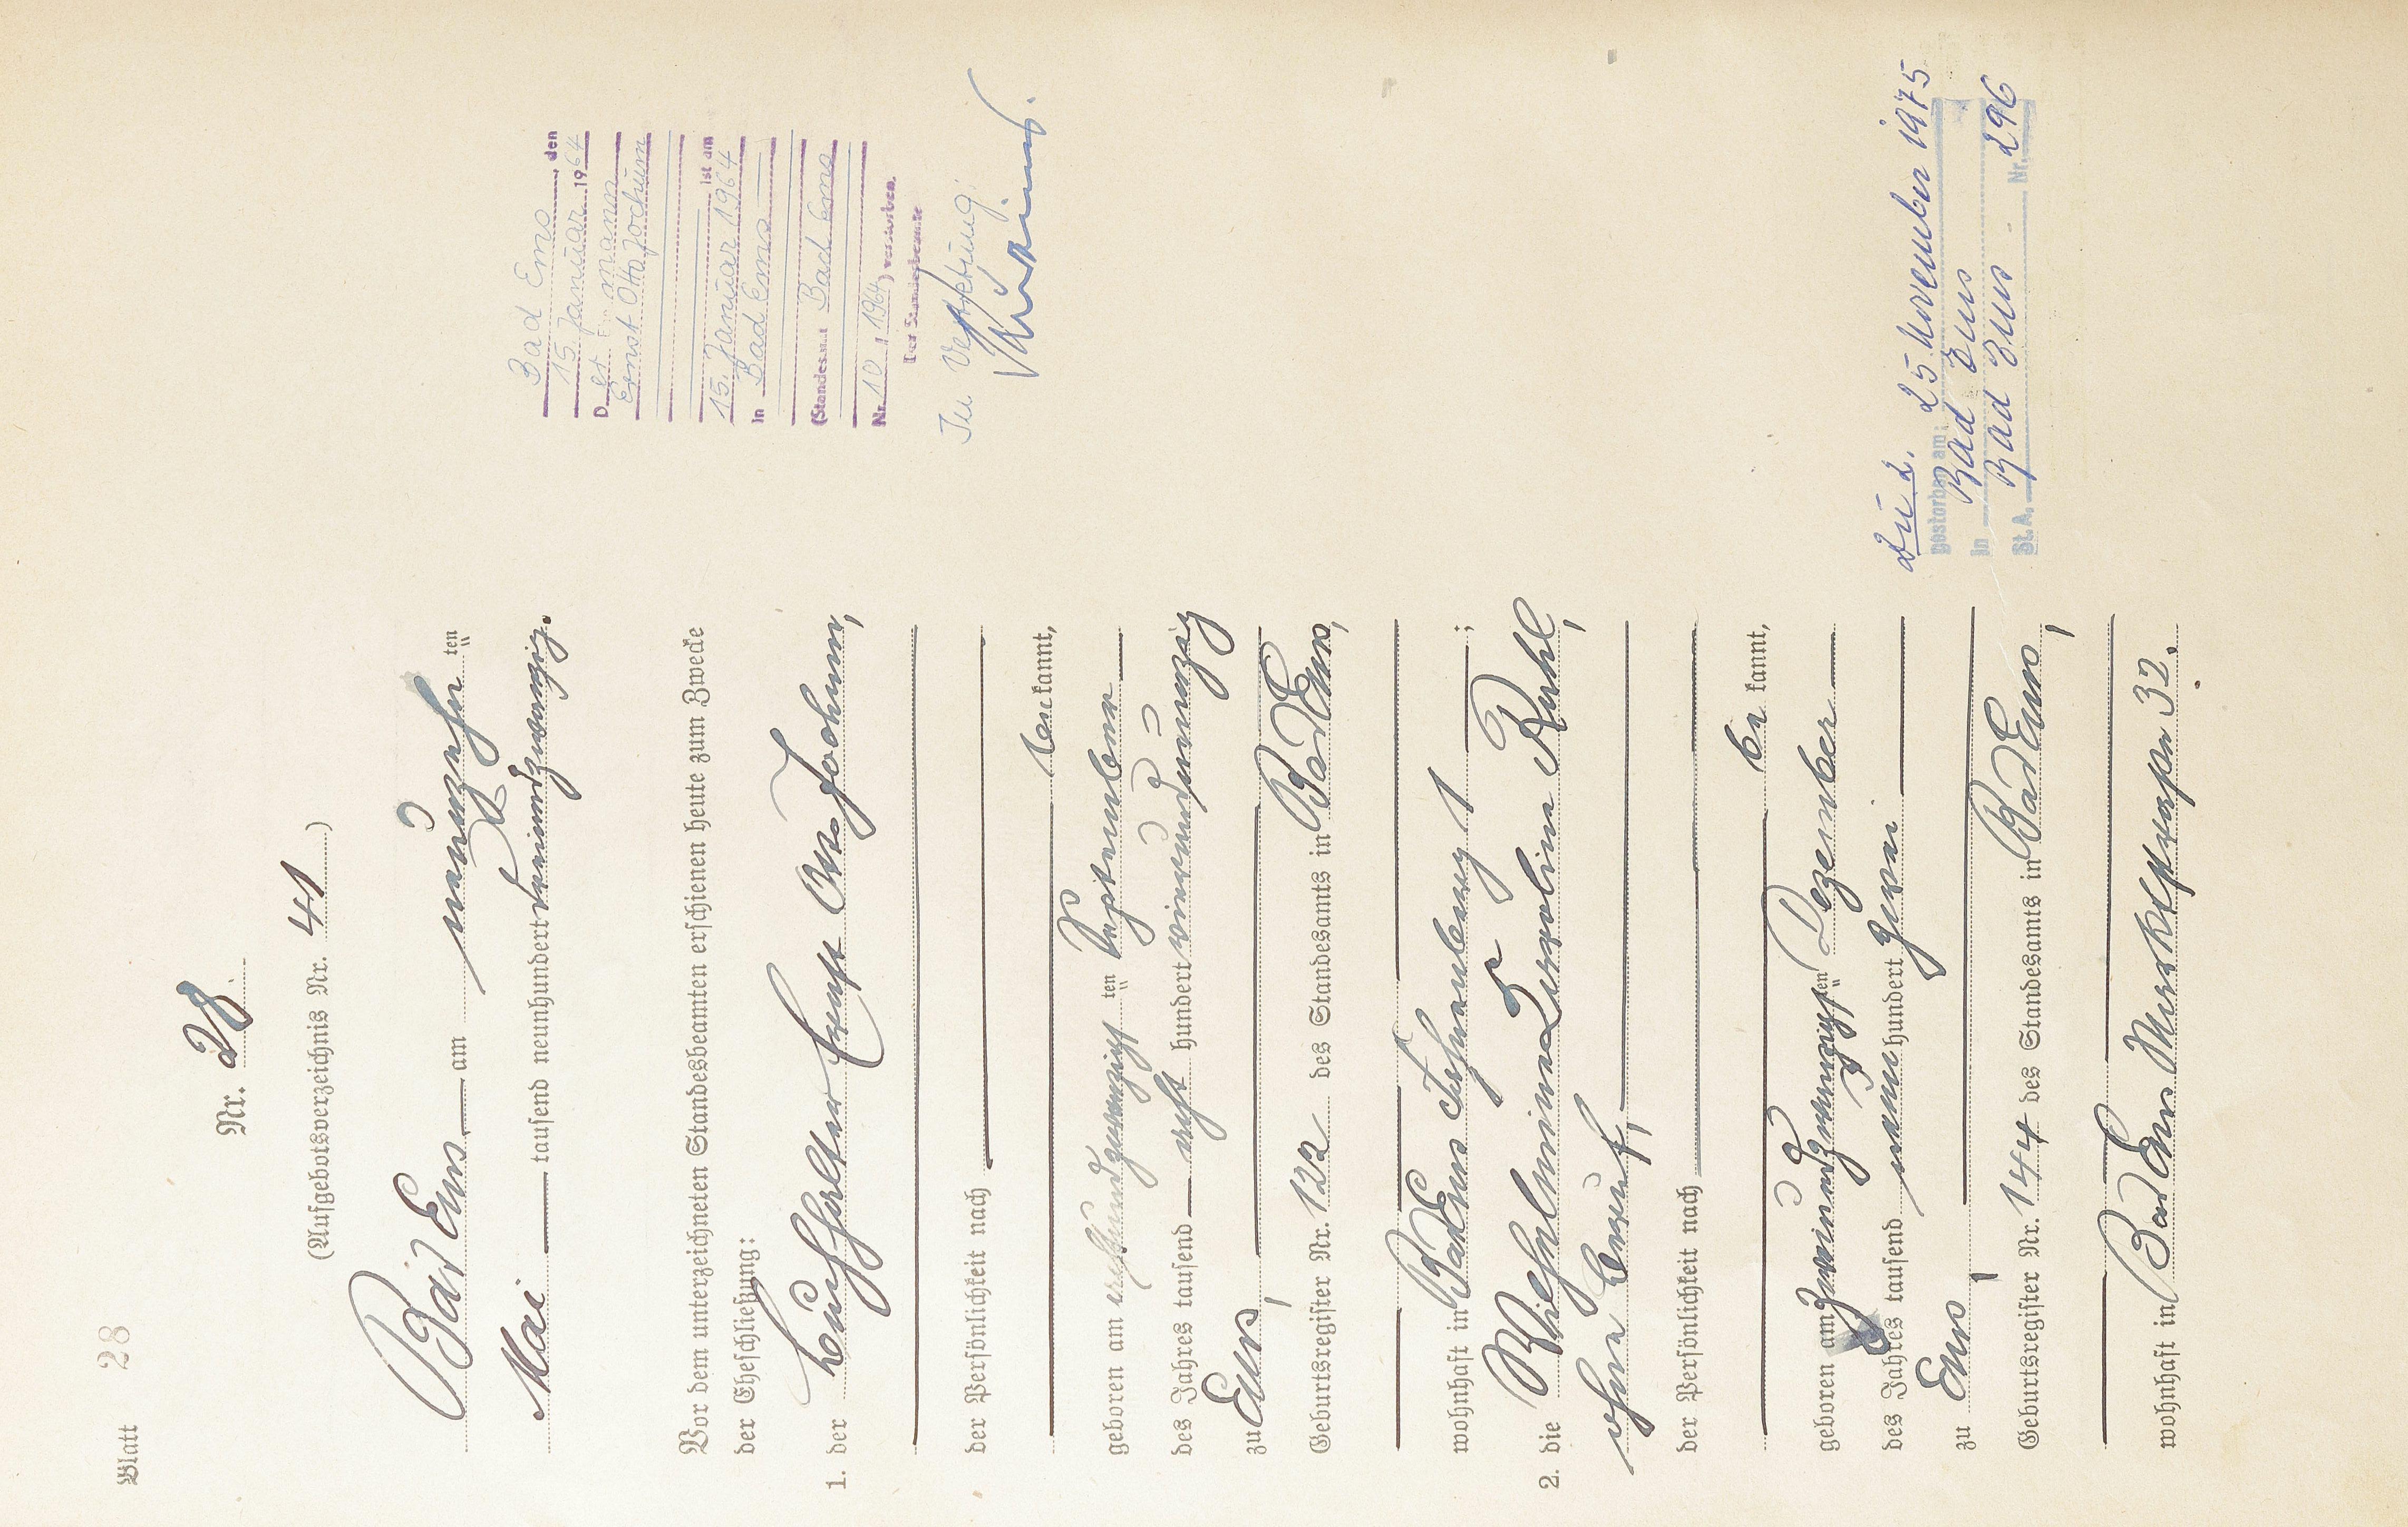 Blatt 28
Nr. 28.
(Aufgebotsverzeichnis Nr. 41)
Bad Ems am neunzehnten
Mai tausend neunhundert
Vor dem unterzeichneten Standesbeamten erschienen heute zum Zwecke
der Eheschließung:
1. der Buchhalter Ernst Otto Jochum,
der Persönlichkeit nach
bekannt,
geboren am achtundzwanzigsten September
des Jahres tausend acht hundert vierundneunzig
zu Ems,
Geburtsregister Nr. 122 des Standesamts in Bad Ems,
wohnhaft in Bad Ems 1;
2. die Wilhelmine Karoline Ruhl,
ohne Beruf,
der Persönlichkeit nach
bekannt,
geboren am zweiundzwanzigsten Dezember
des Jahres tausend neun hundert zwei
zu Ems,
Geburtsregister Nr. 144 des Standesamts in Bad Ems,
wohnhaft in Bad Ems Marktstraße 32.
Bad Ems, den
15. Januar 1964
Der Ehemann
Ernst Otto Jochum
ist am
15. Januar 1964
in Bad Ems
(Standesamt Bad Ems
Nr. 10 / 1964) verstorben.
Der Standesbeamte
In Vertretung:
Zu 2.
Gestorben am: 25 November 1975
in Bad Ems
St.A. Bad Ems - Nr. 296